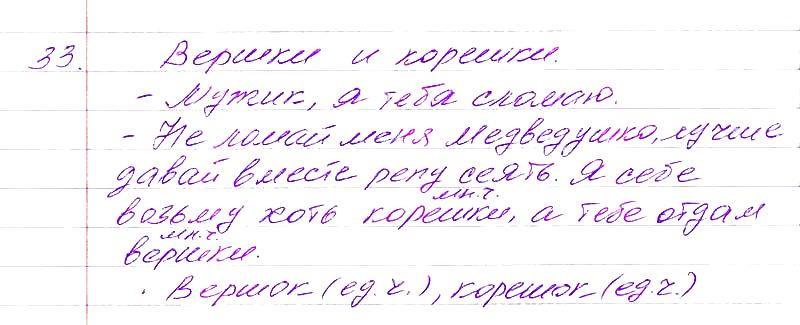 33. Вершки и корешки.
– Мужик, я тебя сломаю.
– Не ломай меня медведушко, лучше
давай вместе репу сеять. Я себе
мн.ч.
возьму хоть корешки, а тебе отдам
мн.ч.
вершки.
Вершок (ед.ч.), корешок (ед.ч.)